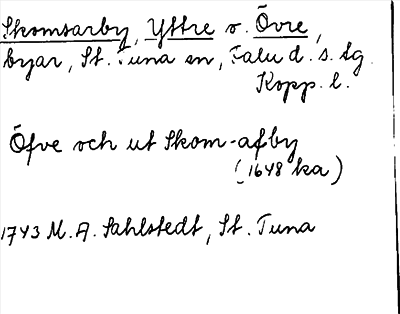 Skomsarby, Yttre o. Övre,
byar, St. Tuna sn, Falu d. s. tg.
Kopp. l.
Öfve och ut Skom-afby
(1648 ka)
1743 M. A. Sahlstedt, St. Tuna